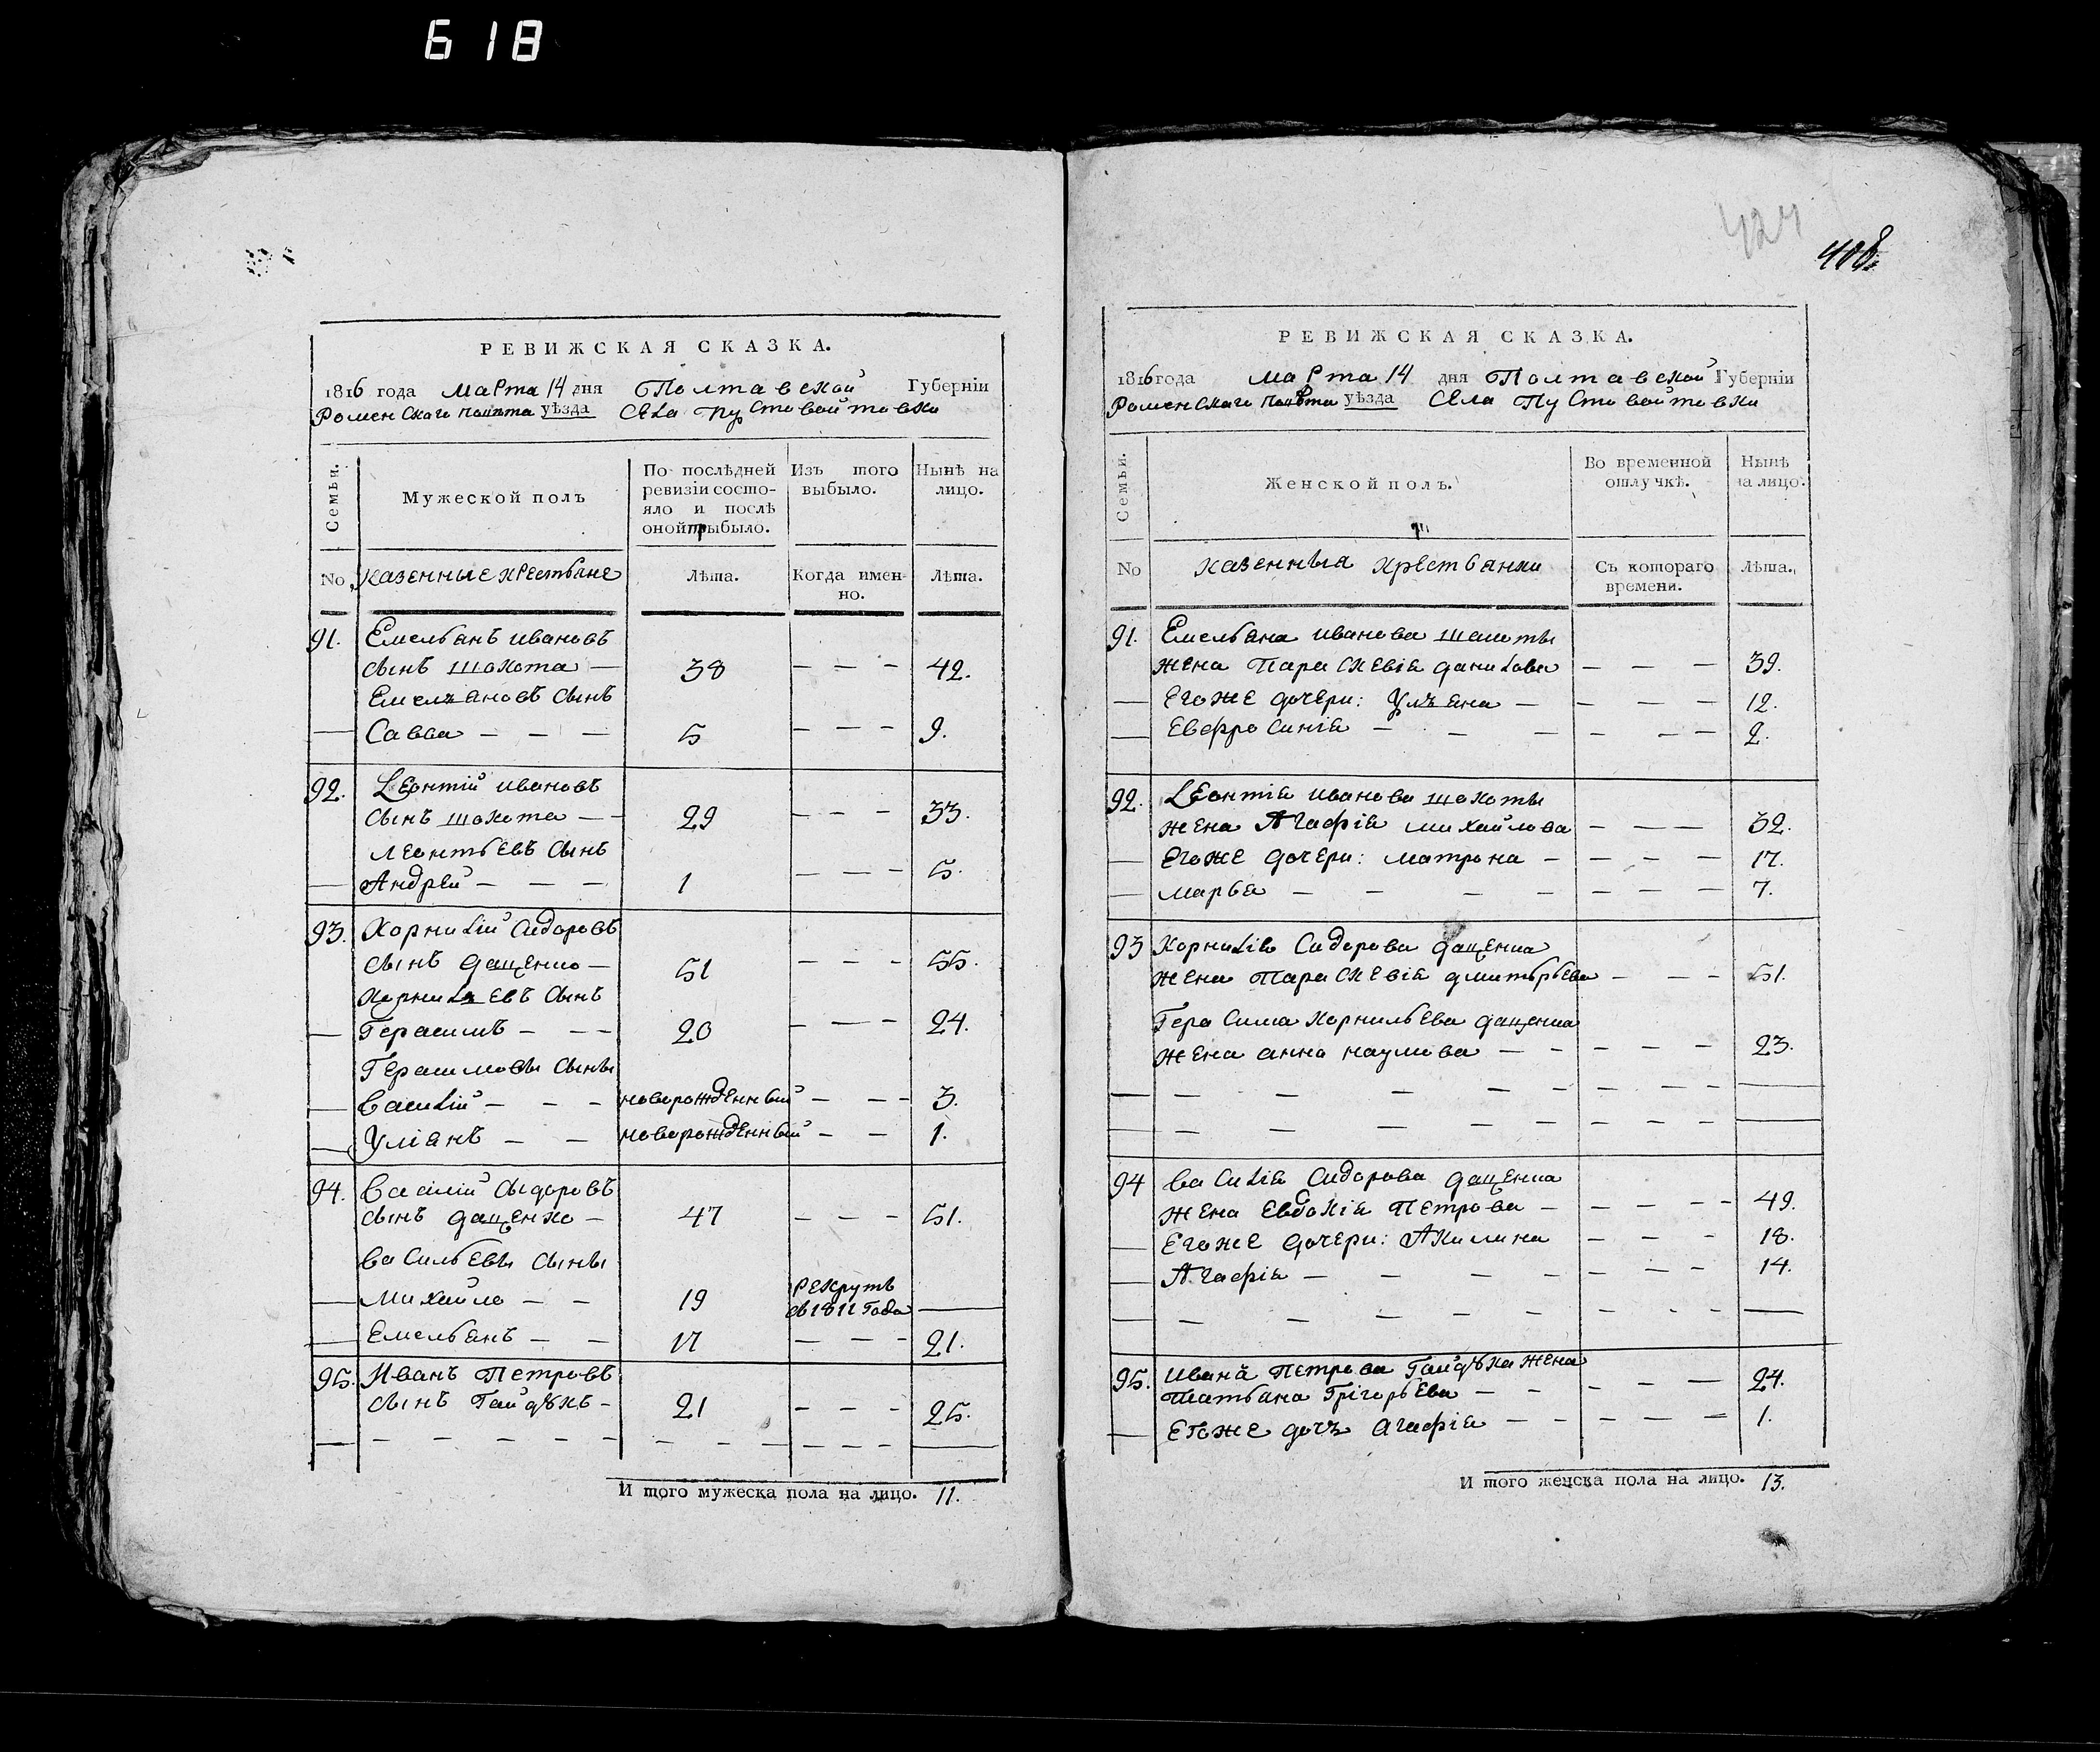 618
РЕВИЖСКАЯ СКАЗКА.
1816 года Марта 14 дня Полтавской Губерніи
Роменскаго повѣта уѣзда Села Пустовойтовки
Семьи.
Мужеской полъ
По послѣдней ревизіи состояло и послѣ оной прибыло.
Изъ того выбыло.
Нынѣ на лицо.
No
казенные крестьяне
Лѣта.
Когда именно.
Лѣта.
91. Емельянъ Ивановъ
сынъ шохота — 38 — — — 42.
Емельяновъ сынъ
— Савва — — — 5 — — — 9.
92. Леонтій Ивановъ
сынъ шохота — — 29 — — — 33.
леонтьевъ сынъ
— Андрей — — — 1 — — — 5.
93. Корнилій Сидоровъ
сынъ дащенко — 51 — — — 55.
Корнилаевъ сынъ
— Герасимъ — — — 20 — — — 24.
Герасимовы сыны
— Василій — — — новорожденный — — — 3.
— Уліанъ — — новорожденный — — 1.
94. Василій Сыдоровъ
сынъ дащенко — 47 — — — 51.
Васильевы сыны
— Михайло — — 19 рекрутъ
въ 1811 Года —
— Емельянъ — — 17 — — — 21.
95. Иванъ Петровъ
сынъ Гайдукъ — 21 — — — 25.
И того мужеска пола на лицо. 11.
424
408
РЕВИЖСКАЯ СКАЗКА.
1816 года Марта 14 дня Полтавской Губерніи
Роменскаго повѣта уѣзда Села Пустовойтовки
Семьи.
Женской полъ.
Во временной отлучкѣ.
Нынѣ на лицо.
No
казенныя крестьянки
Съ котораго времени.
Лѣта.
91. Емельяна Иванова шохоты
жена Параскевія данилова — — — 39.
— Егоже дочери: Ульяна — — — — 12.
— Евфросинія — — — — — — 2.
92. Леонтія Иванова шохоты
жена Агафія михайлова — — — 32.
— Егоже дочери: матрона — — — — 17.
— марья — — — — — — — 7.
93 Корнилія Сидорова дащенка
жена Параскевія дмитърьева — — — 51.
Герасима Корнильева дащенка
жена анна наумова — — — — — 23.
94 Василія Сидорова дащенка
жена Евдокія Петрова — — — — — 49.
— Егоже дочери: Акилина — — — 18.
— Агафія — — — — — — — 14.
95. Ивана Петрова Гайдука жена
Татьяна Грігорьева — — — — — 24.
— Егоже дочъ Агафія — — — — — 1.
И того женска пола на лицо. 13.